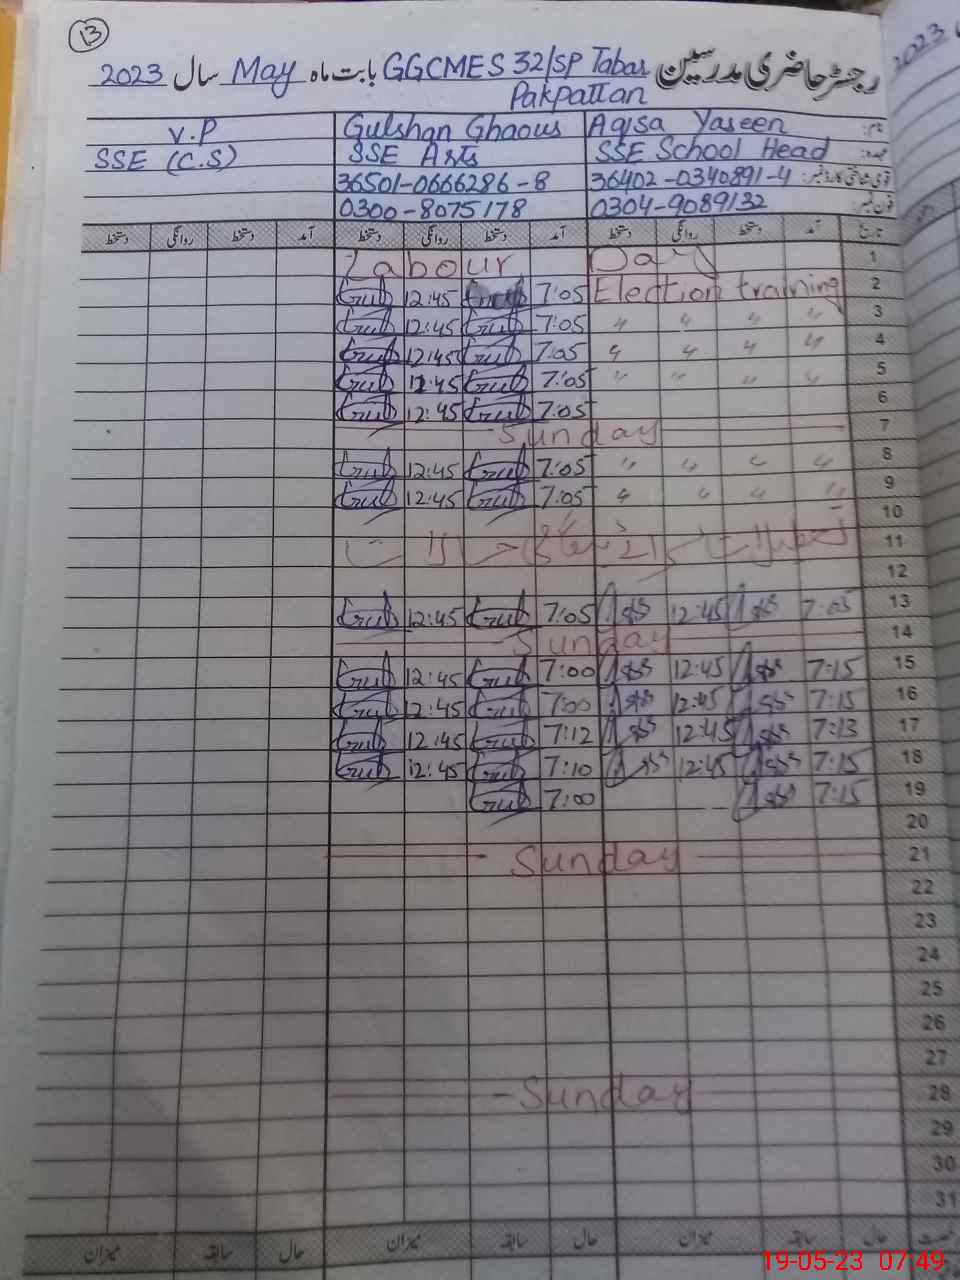 13
رجسٹر حاضری مدرسین GGCMES 32/SP Tabar بابت ماہ May سال 2023
Pakpattan
2023
نام: Aqsa Yaseen Gulshan Ghaous V.P
عہدہ: SSE School Head SSE Arts SSE (C.S)
قومی شناختی کارڈ نمبر: 36402-0340891-4 36501-0666286-8
فون نمبر: 0304-9089132 0300-8075178
تاریخ آمد دستخط روانگی دستخط آمد دستخط روانگی دستخط آمد دستخط روانگی دستخط
1 Labour Day
2 12:45 7:05 Election training
3 12:45 7:05 〃 〃 〃 〃
4 12:45 7:05 〃 〃 〃 〃
5 12:45 7:05 〃 〃 〃 〃
6 12:45 7:05
7 Sunday
8 12:45 7:05 〃 〃 〃 〃
9 12:45 7:05 〃 〃 〃 〃
10
11 حالات
12
13 12:45 7:05 12:45 7:05
14 Sunday
15 12:45 7:00 12:45 7:15
16 12:45 7:00 12:45 7:15
17 12:45 7:12 12:45 7:13
18 12:45 7:10 12:45 7:15
19 7:00 7:15
20
21 Sunday
22
23
24
25
26
27
28 Sunday
29
30
31
حال سابقہ میزان حال سابقہ میزان حال سابقہ میزان
19-05-23 07:49